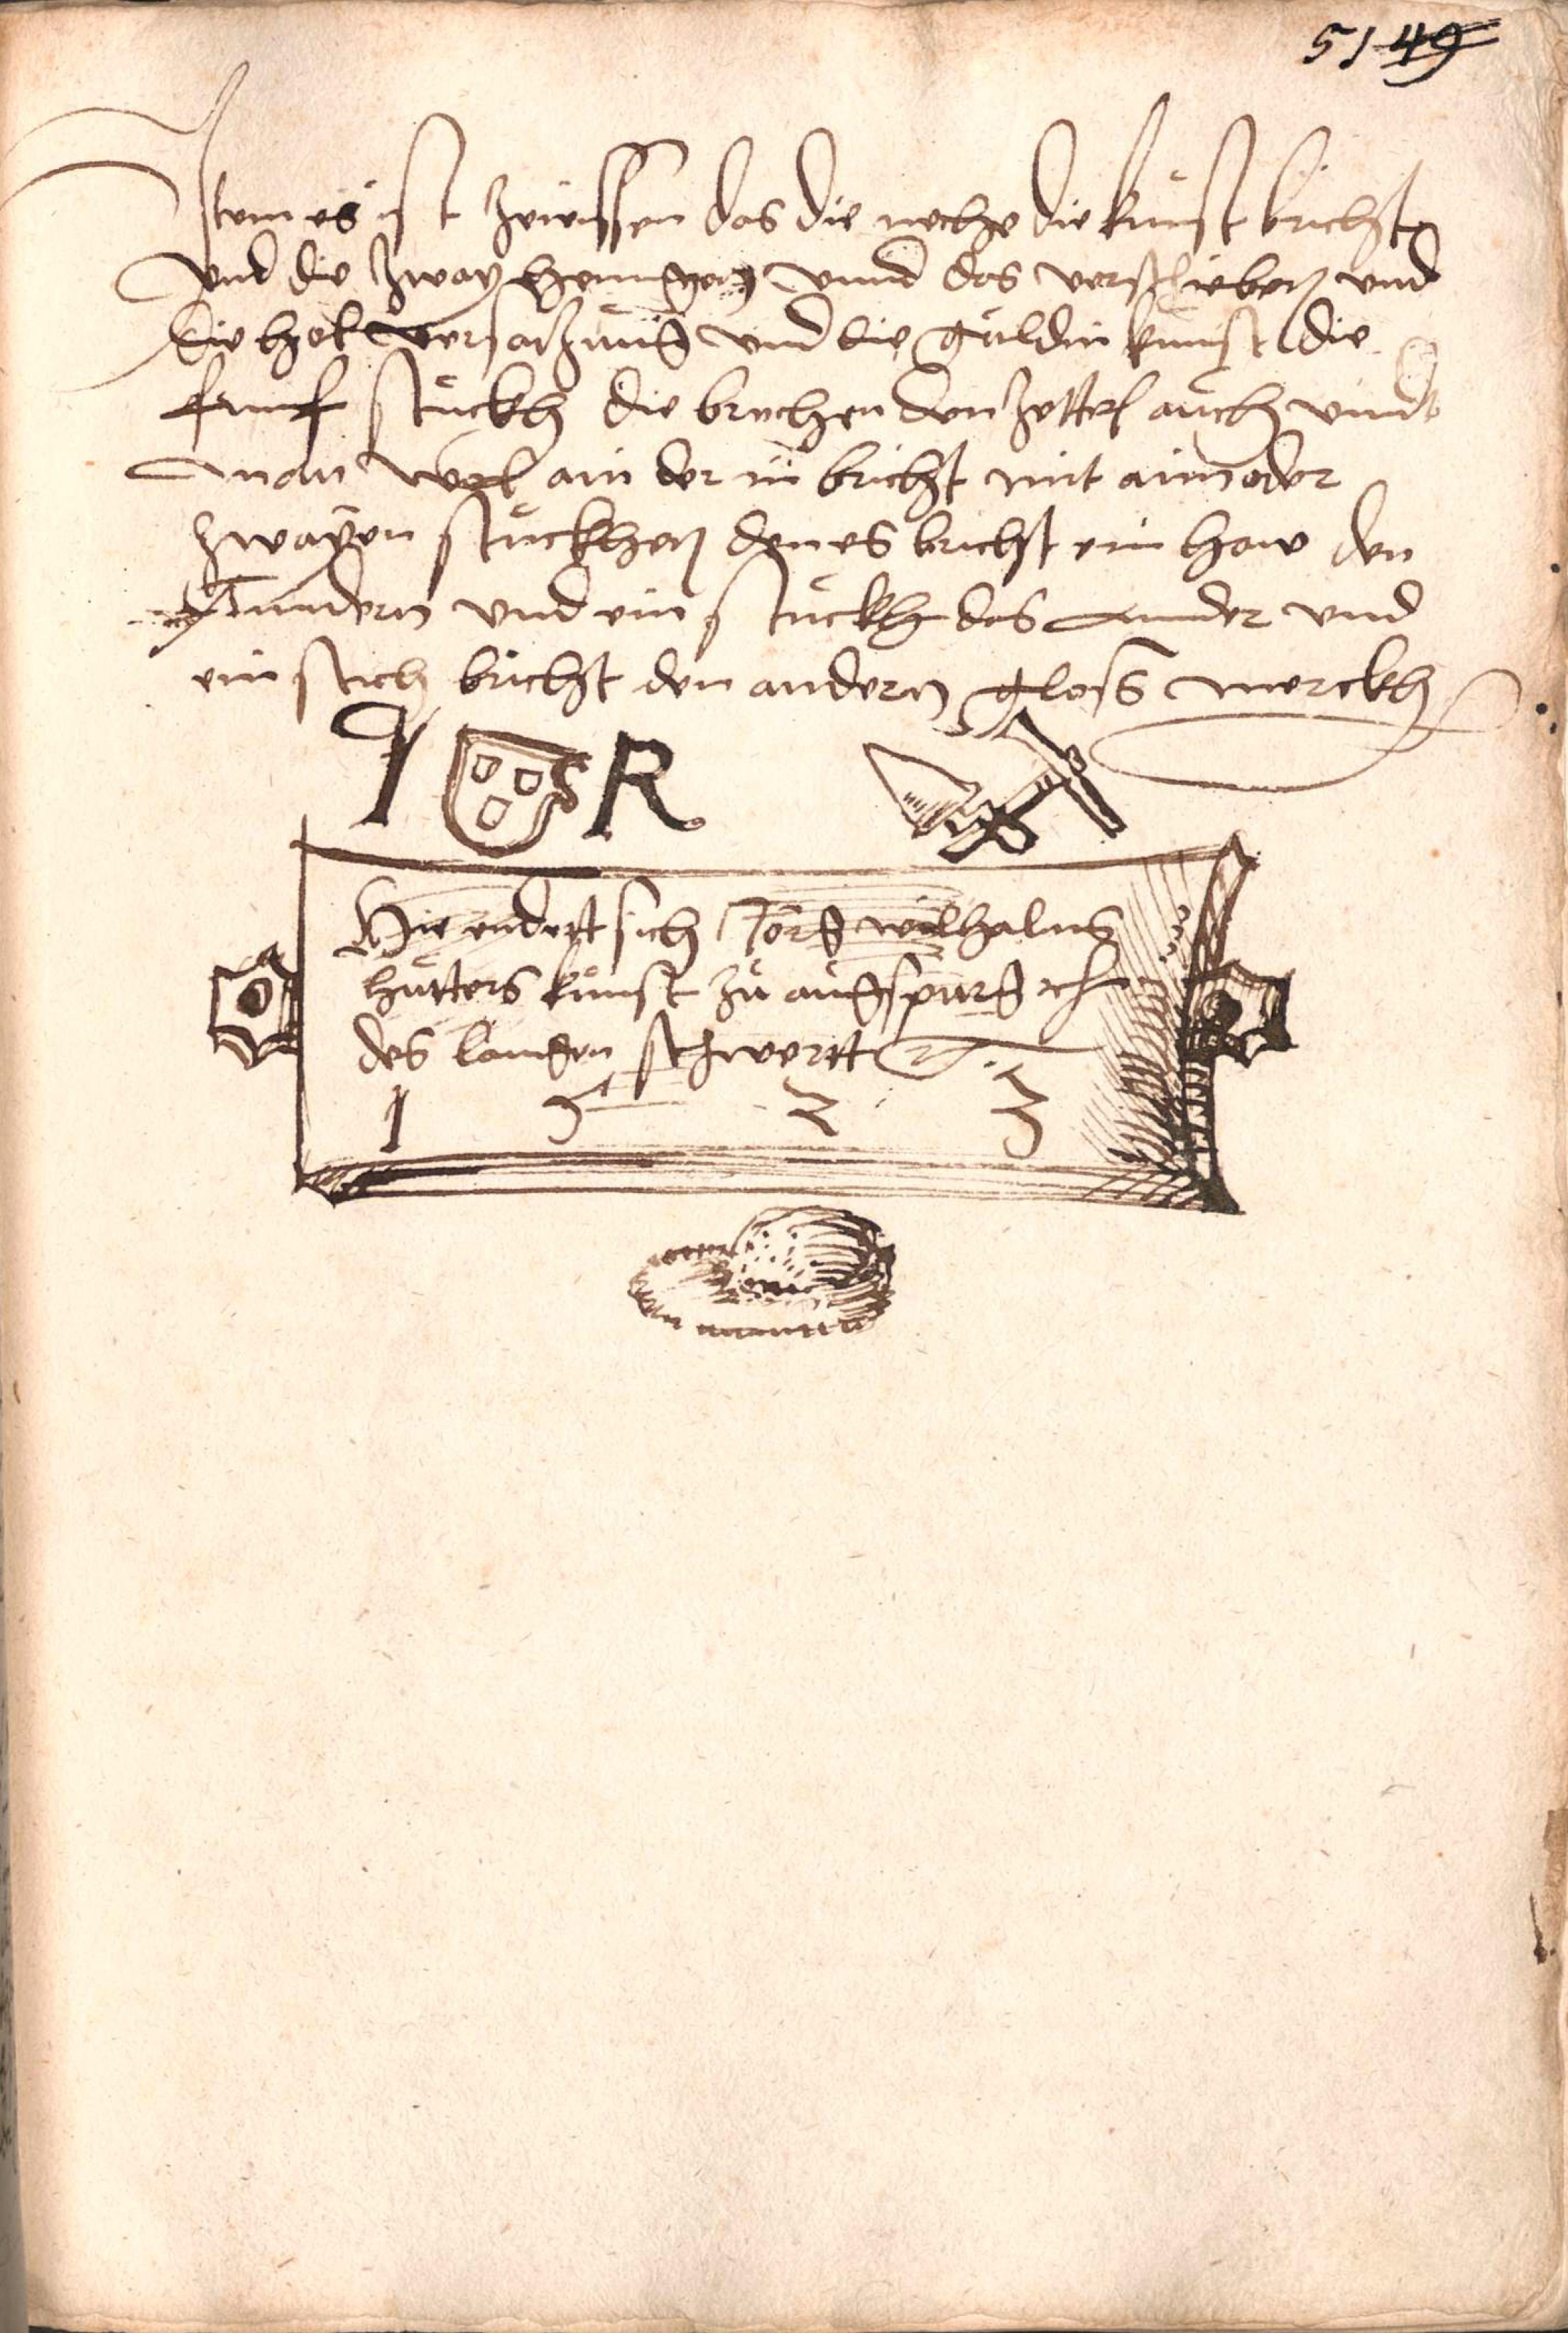 51 49
Item es ist zewissen das die neche die kunst bricht
vnd die zway henngen vnnd das verschieben vnd
die hohet versatzung vnd die guldin kunst die
funf stuckh die brechen den zettel auch vnnd
man wol ain der in bricht mit aim oder
zwayen stuckhen den es bricht ein haw den
Anndern vnd ein stuckh das annder vnd
ein stich bricht den andern gloß merckh
I R
Hie endett sich Jörg wilhalms
hutters kunst zu augspurg etc
des langen schwertt
1 5 2 3